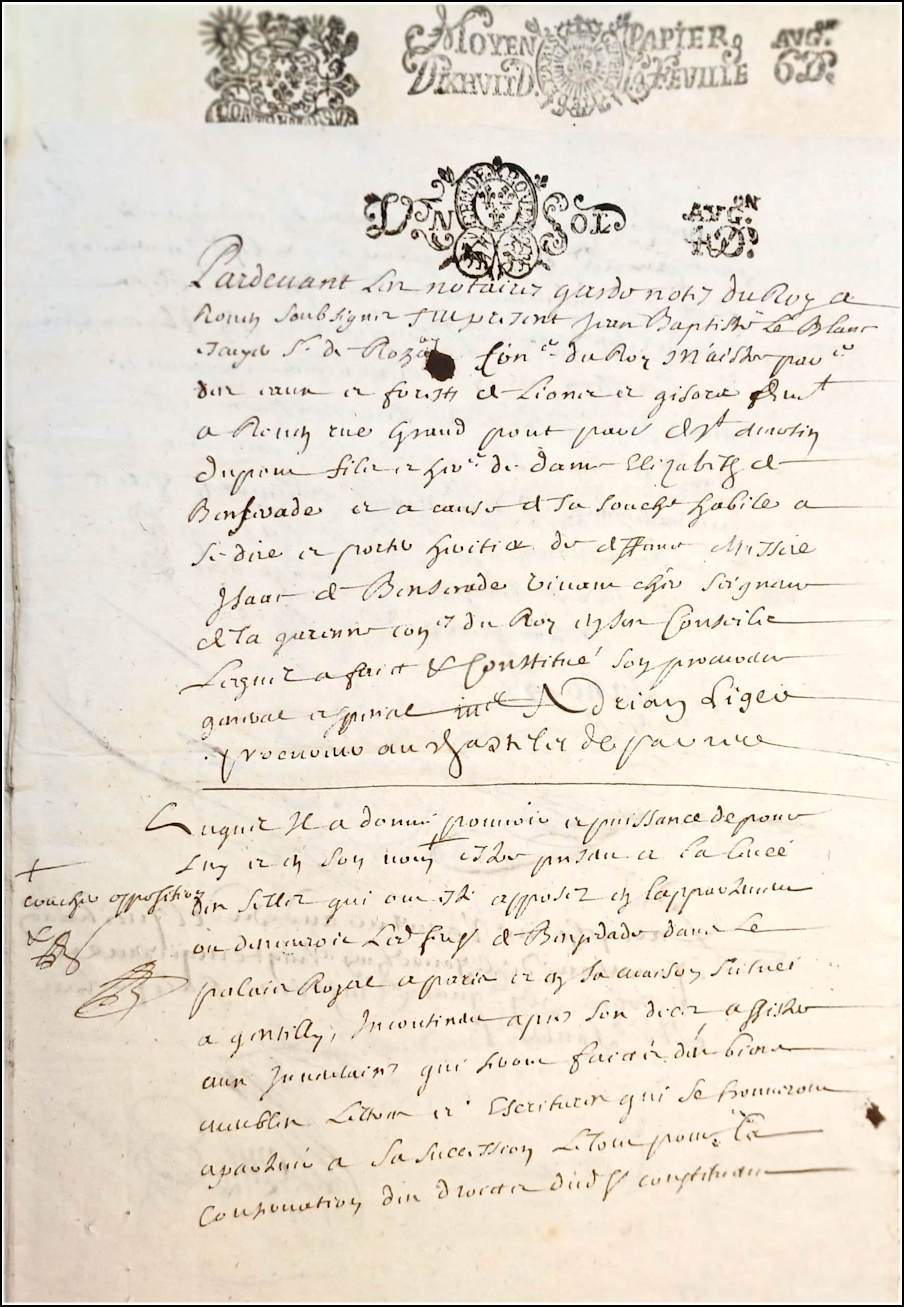 MOYEN PAPIER AVG.ON
DIXHVIT D. LA FEVILLE 6D.
VN SOL AVG.ON
4D.
GEN.DE ROVEN
Pardevant les notaires gardenotes du Roy a
Rouen soubsignes fut present Jean Baptiste Le Blanc
Sr. de Roz Con.er du Roy M'aistre par.er
des eaux et forests de Lions et gisors demt
a Rouen rue Grand pont parr de St
fils et her.er de dame Elizabeth de
Benserade et a cause de la souche habile a
se dire et porter heritier de deffunt Messire
Isaac de Benserade vivant cher Seigneur
de la garenne con.er du Roy en son Conseils
Lequel a faict & Constitué son procureur
general et special Adrian Liger
procureur au Chastelet de parris
Auquel Il a donné pouvoir et puissance de pour
luy et en son nom estre present a la levée
des sellez qui ont esté apposez en lappartement
ou demeuroit Led feu sr de Benserade dans Le
palais Royal a paris et en sa maison scituée
a gentilly, Incontinent apres son decez assister
aux Inventaires qui seront faictes des biens
meubles Lettres et Escritures qui se trouveront
apartenir a sa succession Le tout pour la
Conservation des droicts dud sr constituant
+
coucher opposition
&